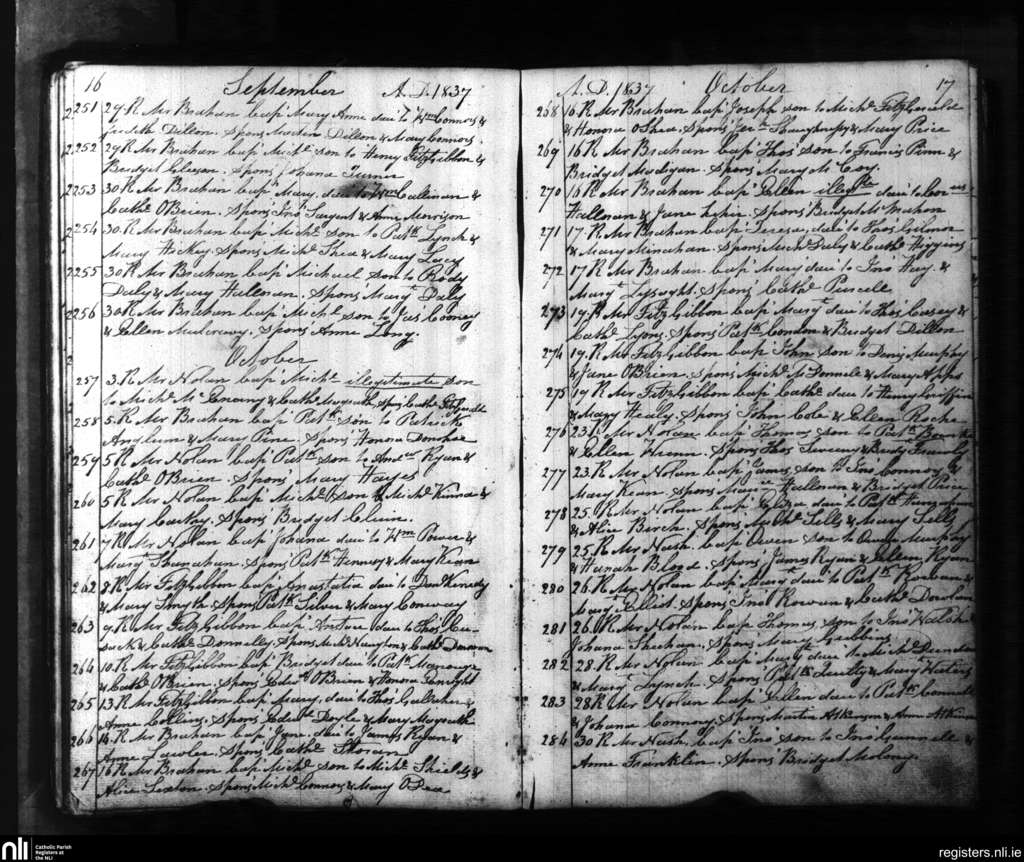 16 September A.D. 1837
2251 29. R. Mr Brahan bap' Mary Anne dau' to Wm Connors &
Judith Dillon. Spons' Martin Dillon & Mary Connors.
2252 29 R. Mr Brahan bap' Michl son to Henry FitzGibbon &
Bridget Gleeson. Spons' Johana Turner
2253 30 R. Mr Brahan bap' Mary, dau' to Wm Callinan &
Cathe OBrien. Spons' Jno Sargent & Anne Morrison
2254 30. R. Mr Brahan bap' Michl son to Patk Lynch &
Mary Hickey. Spons' Michl Shea & Mary Lacy
2255 30 R. Mr Brahan bap' Michael son to Rody
Daly & Mary Hallman. Spons' Margt Daly
2256 30 R. Mr Brahan bap' Michl son to Jas Cooney
& Ellen Mulcreavy. Spons' Anne Long.
October
257 3. R. Mr Nolan bap' Michl illegitimate son
to Michl & Cathe Spons' Cathe
258 5. R. Mr Brahan bap' Patk son to Patrick
Anglum & Mary Pine. Spons' Honora Donohoe
259 5 R. Mr Nolan bap' Patk son to Andw Ryan &
Cathe OBrien. Spons' Mary Hayes
260 5 R. Mr Nolan bap' Michl son to Michl Kinna &
Mary Carthy. Spons' Bridget Cluin.
261 7 R. Mr Nolan bap' Johana dau' to Wm Power &
Margt Shanahan. Spons' Patk Hennesy & Mary Kean
262 8. R. Mr FitzGibbon bap' Anastatia dau' to Dan Kenedy
& Mary Smyth. Spons' Patk Silver & Mary Conway
263 9 R. Mr FitzGibbon bap' dau' to Thos
& Cathe Donnelly. Spons' Michl Naughton & Cathe
264 10. R. Mr FitzGibbon bap' Bridget dau' to Patk
& Cathe OBrien. Spons' Edwd OBrien & Honora Enright
265 13 R. Mr FitzGibbon bap' Mary, dau' to Thos Gallaher &
Anne Collins. Spons' Edwd Doyle & Mary Magrath
266 14 R. Mr Brahan bap' Jane, dau' to James Ryan &
Anne Lawler. Spons' Cathe Horan.
267 16 R. Mr Brahan bap' Michl son to Michl Shields &
Alice Sexton. Spons' Michl Connors & Mary ODea
A.D. 1837 October 17
268 16 R. Mr Brahan bap' Joseph son to Michl FitzGerald
& Honora OShea. Spons' & Mary Price
269 16 R. Mr Brahan bap' Thos son to Francis Pinn &
Bridget Madigan. Spons' Mary McCoy.
270 16 R. Mr Brahan bap' Ellen illegte dau' to Cors
Hallman & Jane. Spons' Bridget McMahon
271 17. R. Mr Brahan bap' Teresa, dau' to Thos Gilmor
& Mary Minahan. Spons' Michl Daly & Cathe Higgins
272 17 R. Mr Brahan bap' Mary dau' to Jno Hay. &
Margt Lysaght. Spons' Cathe Purcell
273 19. R. Mr FitzGibbon bap' Margt dau' to Thos Casey &
Cathe Lyons. Spons' Patk Condon & Bridget Dillon
274 19. R. Mr FitzGibbon bap' John son to Denis Murphy
& Jane OBrien. Spons' Michl & Mary
275 19 R. Mr FitzGibbon bap' Cathe dau' to Henry Griffin
& Mary Healy. Spons' John Cole & Ellen Roche
276 23. R. Mr Nolan bap' Thomas son to Patk Bourke
& Ellen Wrenn. Spons' Thos & Bridgt Frawly
277 23. R. Mr Nolan bap' James son to Jno Connors &
Mary Kean. Spons' Maurice Hallman & Bridget Price
278 25. R. Mr Nolan bap' Eliza dau' to Patk
& Alice Birch. Spons' Tilly & Mary Tilly
279 25. R. Mr Nash bap' Owen son to Owen Murphy
& Hanah Blood. Spons' James Ryan & Ellen Ryan
280 26. R. Mr Nolan bap' Mary dau' to Patk Rowan &
Mary Elliot. Spons' Jno Rowan & Cathe Dowlan
281 26. R. Mr Nolan bap' Thomas son to Jno Walsh &
Johana Sheehan. Spons' Mary Gubbins
282 28. R. Mr Nolan bap' Margt dau' to Michl
& Mary Lynch. Spons' Patk Quilty & Margt
283 28 R. Mr Nolan bap' Ellen dau' to Patk Connell
& Johana Connory. Spons' Martin Atkinson & Anne Atkinson
284 30 R. Mr Nash. bap' Jno son to Jno Gunnell &
Anne Franklin. Spons' Bridget Molony.
nli Catholic Parish
Registers at
the NLI
registers.nli.ie